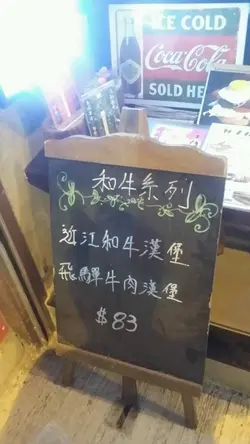 ICE COLD
Coca-Cola
SOLD HE
和牛系列
近江和牛漢堡
飛驒牛肉漢堡
$83